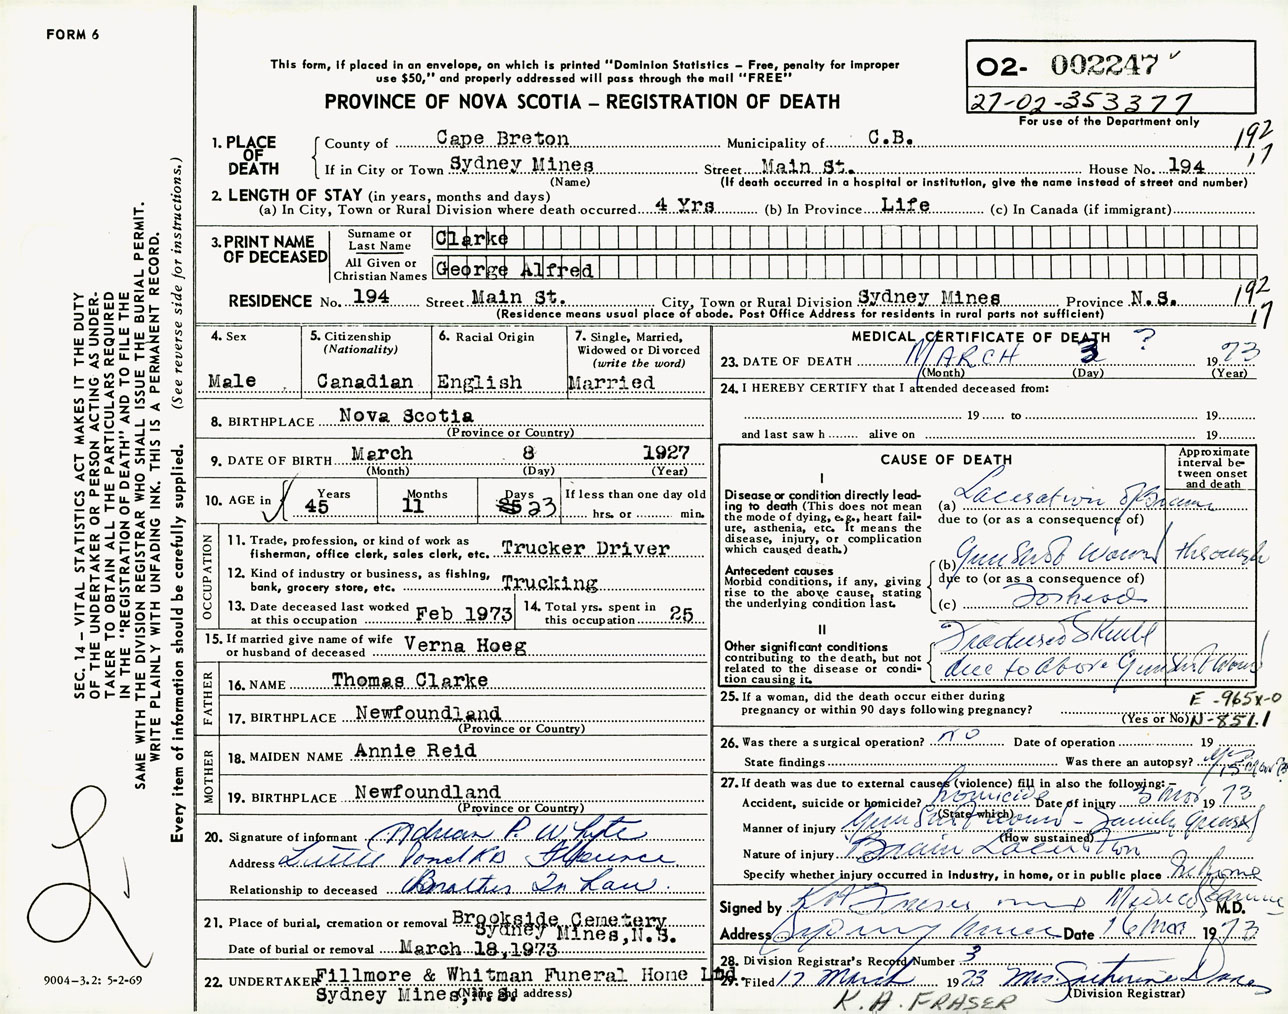 FORM 6
This form, if placed in an envelope, on which is printed "Dominion Statistics – Free, penalty for improper
use $50," and properly addressed will pass through the mail "FREE"
PROVINCE OF NOVA SCOTIA – REGISTRATION OF DEATH
02- 002247
27-02-353377
For use of the Department only
1. PLACE OF DEATH
County of Cape Breton Municipality of C.B.
If in City or Town Sydney Mines Street Main St. House No. 194
(Name) (If death occurred in a hospital or institution, give the name instead of street and number)
192
17
2. LENGTH OF STAY (in years, months and days)
(a) In City, Town or Rural Division where death occurred 4 Yrs (b) In Province Life (c) In Canada (if immigrant)
3. PRINT NAME OF DECEASED
Surname or Last Name Clarke
All Given or Christian Names George Alfred
RESIDENCE No. 194 Street Main St. City, Town or Rural Division Sydney Mines Province N.S.
(Residence means usual place of abode. Post Office Address for residents in rural parts not sufficient)
192
17
4. Sex
Male
5. Citizenship
(Nationality)
Canadian
6. Racial Origin
English
7. Single, Married,
Widowed or Divorced
(write the word)
Married
8. BIRTHPLACE Nova Scotia
(Province or Country)
9. DATE OF BIRTH March 8 1927
(Month) (Day) (Year)
10. AGE in Years 45 Months 11 Days 23 If less than one day old
hrs. or min.
OCCUPATION
11. Trade, profession, or kind of work as
fisherman, office clerk, sales clerk, etc. Trucker Driver
12. Kind of industry or business, as fishing,
bank, grocery store, etc. Trucking
13. Date deceased last worked
at this occupation Feb 1973
14. Total yrs. spent in
this occupation 25
15. If married give name of wife
or husband of deceased Verna Hoeg
FATHER
16. NAME Thomas Clarke
17. BIRTHPLACE Newfoundland
(Province or Country)
MOTHER
18. MAIDEN NAME Annie Reid
19. BIRTHPLACE Newfoundland
(Province or Country)
20. Signature of informant Adrian P. Whyte
Address Little Pond Rd Florence
Relationship to deceased Brother In Law.
21. Place of burial, cremation or removal Brookside Cemetery
Sydney Mines, N.S.
Date of burial or removal March 18, 1973
22. UNDERTAKER Fillmore & Whitman Funeral Home Ltd.
Sydney Mines, N.S.
(Name and address)
MEDICAL CERTIFICATE OF DEATH
23. DATE OF DEATH MARCH 3 ? 1973
(Month) (Day) (Year)
24. I HEREBY CERTIFY that I attended deceased from:
19 to 19
and last saw h alive on 19
CAUSE OF DEATH
Approximate
interval be-
tween onset
and death
I
Disease or condition directly lead-
ing to death (This does not mean
the mode of dying, e.g., heart fail-
ure, asthenia, etc. It means the
disease, injury, or complication
which caused death.)
(a) Laceration of Brain
due to (or as a consequence of)
Antecedent causes
Morbid conditions, if any, giving
rise to the above cause, stating
the underlying condition last.
(b) Gunshot wound through
due to (or as a consequence of)
(c) Forhead
II
Other significant conditions
contributing to the death, but not
related to the disease or condi-
tion causing it.
Fractured Skull
due to above Gunshot Wound
25. If a woman, did the death occur either during
pregnancy or within 90 days following pregnancy?
(Yes or No)
E -965x-0
N-851.1
26. Was there a surgical operation? no Date of operation 19
State findings Was there an autopsy? yes
27. If death was due to external causes (violence) fill in also the following:–
Accident, suicide or homicide? homicide Date of injury 3 Mar 1973
(State which)
Manner of injury Gun Shot Wound - Family
(How sustained)
Nature of injury Brain Laceration
Specify whether injury occurred in industry, in home, or in public place In home
Signed by K A Fraser Medical Examiner M.D.
Address Sydney Mines Date 16 Mar 1973
28. Division Registrar's Record Number 3
29. Filed 17 March 1973 Mrs.
(Division Registrar)
K. A. FRASER
SEC. 14 – VITAL STATISTICS ACT MAKES IT THE DUTY
OF THE UNDERTAKER OR PERSON ACTING AS UNDER-
TAKER TO OBTAIN ALL THE PARTICULARS REQUIRED
IN THE "REGISTRATION OF DEATH" AND TO FILE THE
SAME WITH THE DIVISION REGISTRAR WHO SHALL ISSUE THE BURIAL PERMIT.
WRITE PLAINLY WITH UNFADING INK. THIS IS A PERMANENT RECORD.
Every item of information should be carefully supplied. (See reverse side for instructions.)
9004–3.2: 5-2-69